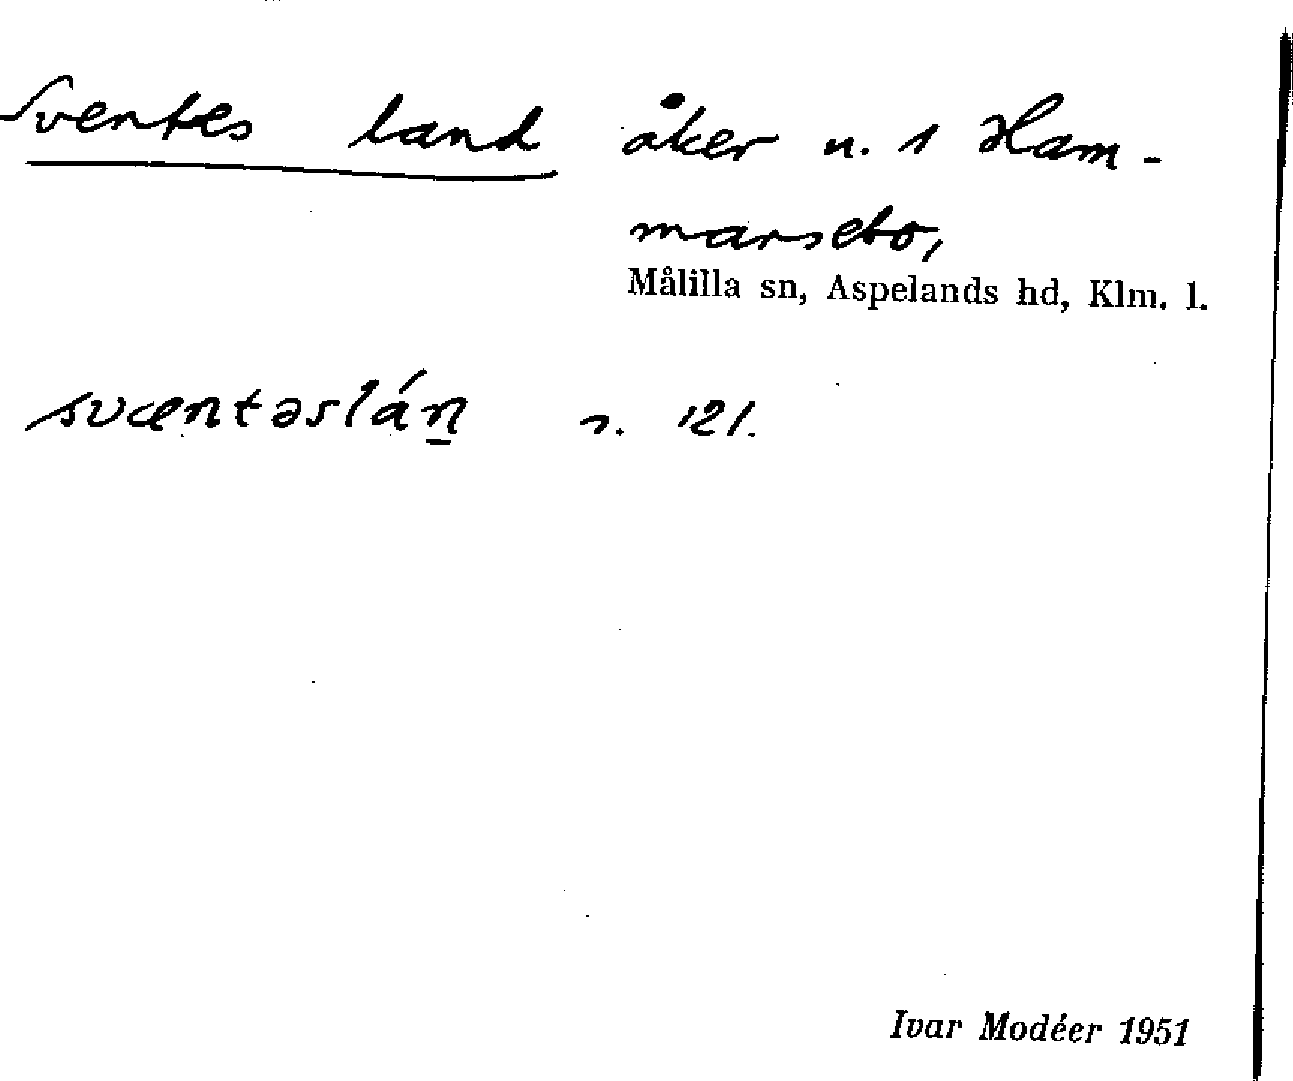 Sventes land åker u. 1 Ham-
marsebo,
Målilla sn, Aspelands hd, Klm. l.
svæntəslán̲ s. 121.
Ivar Modéer 1951